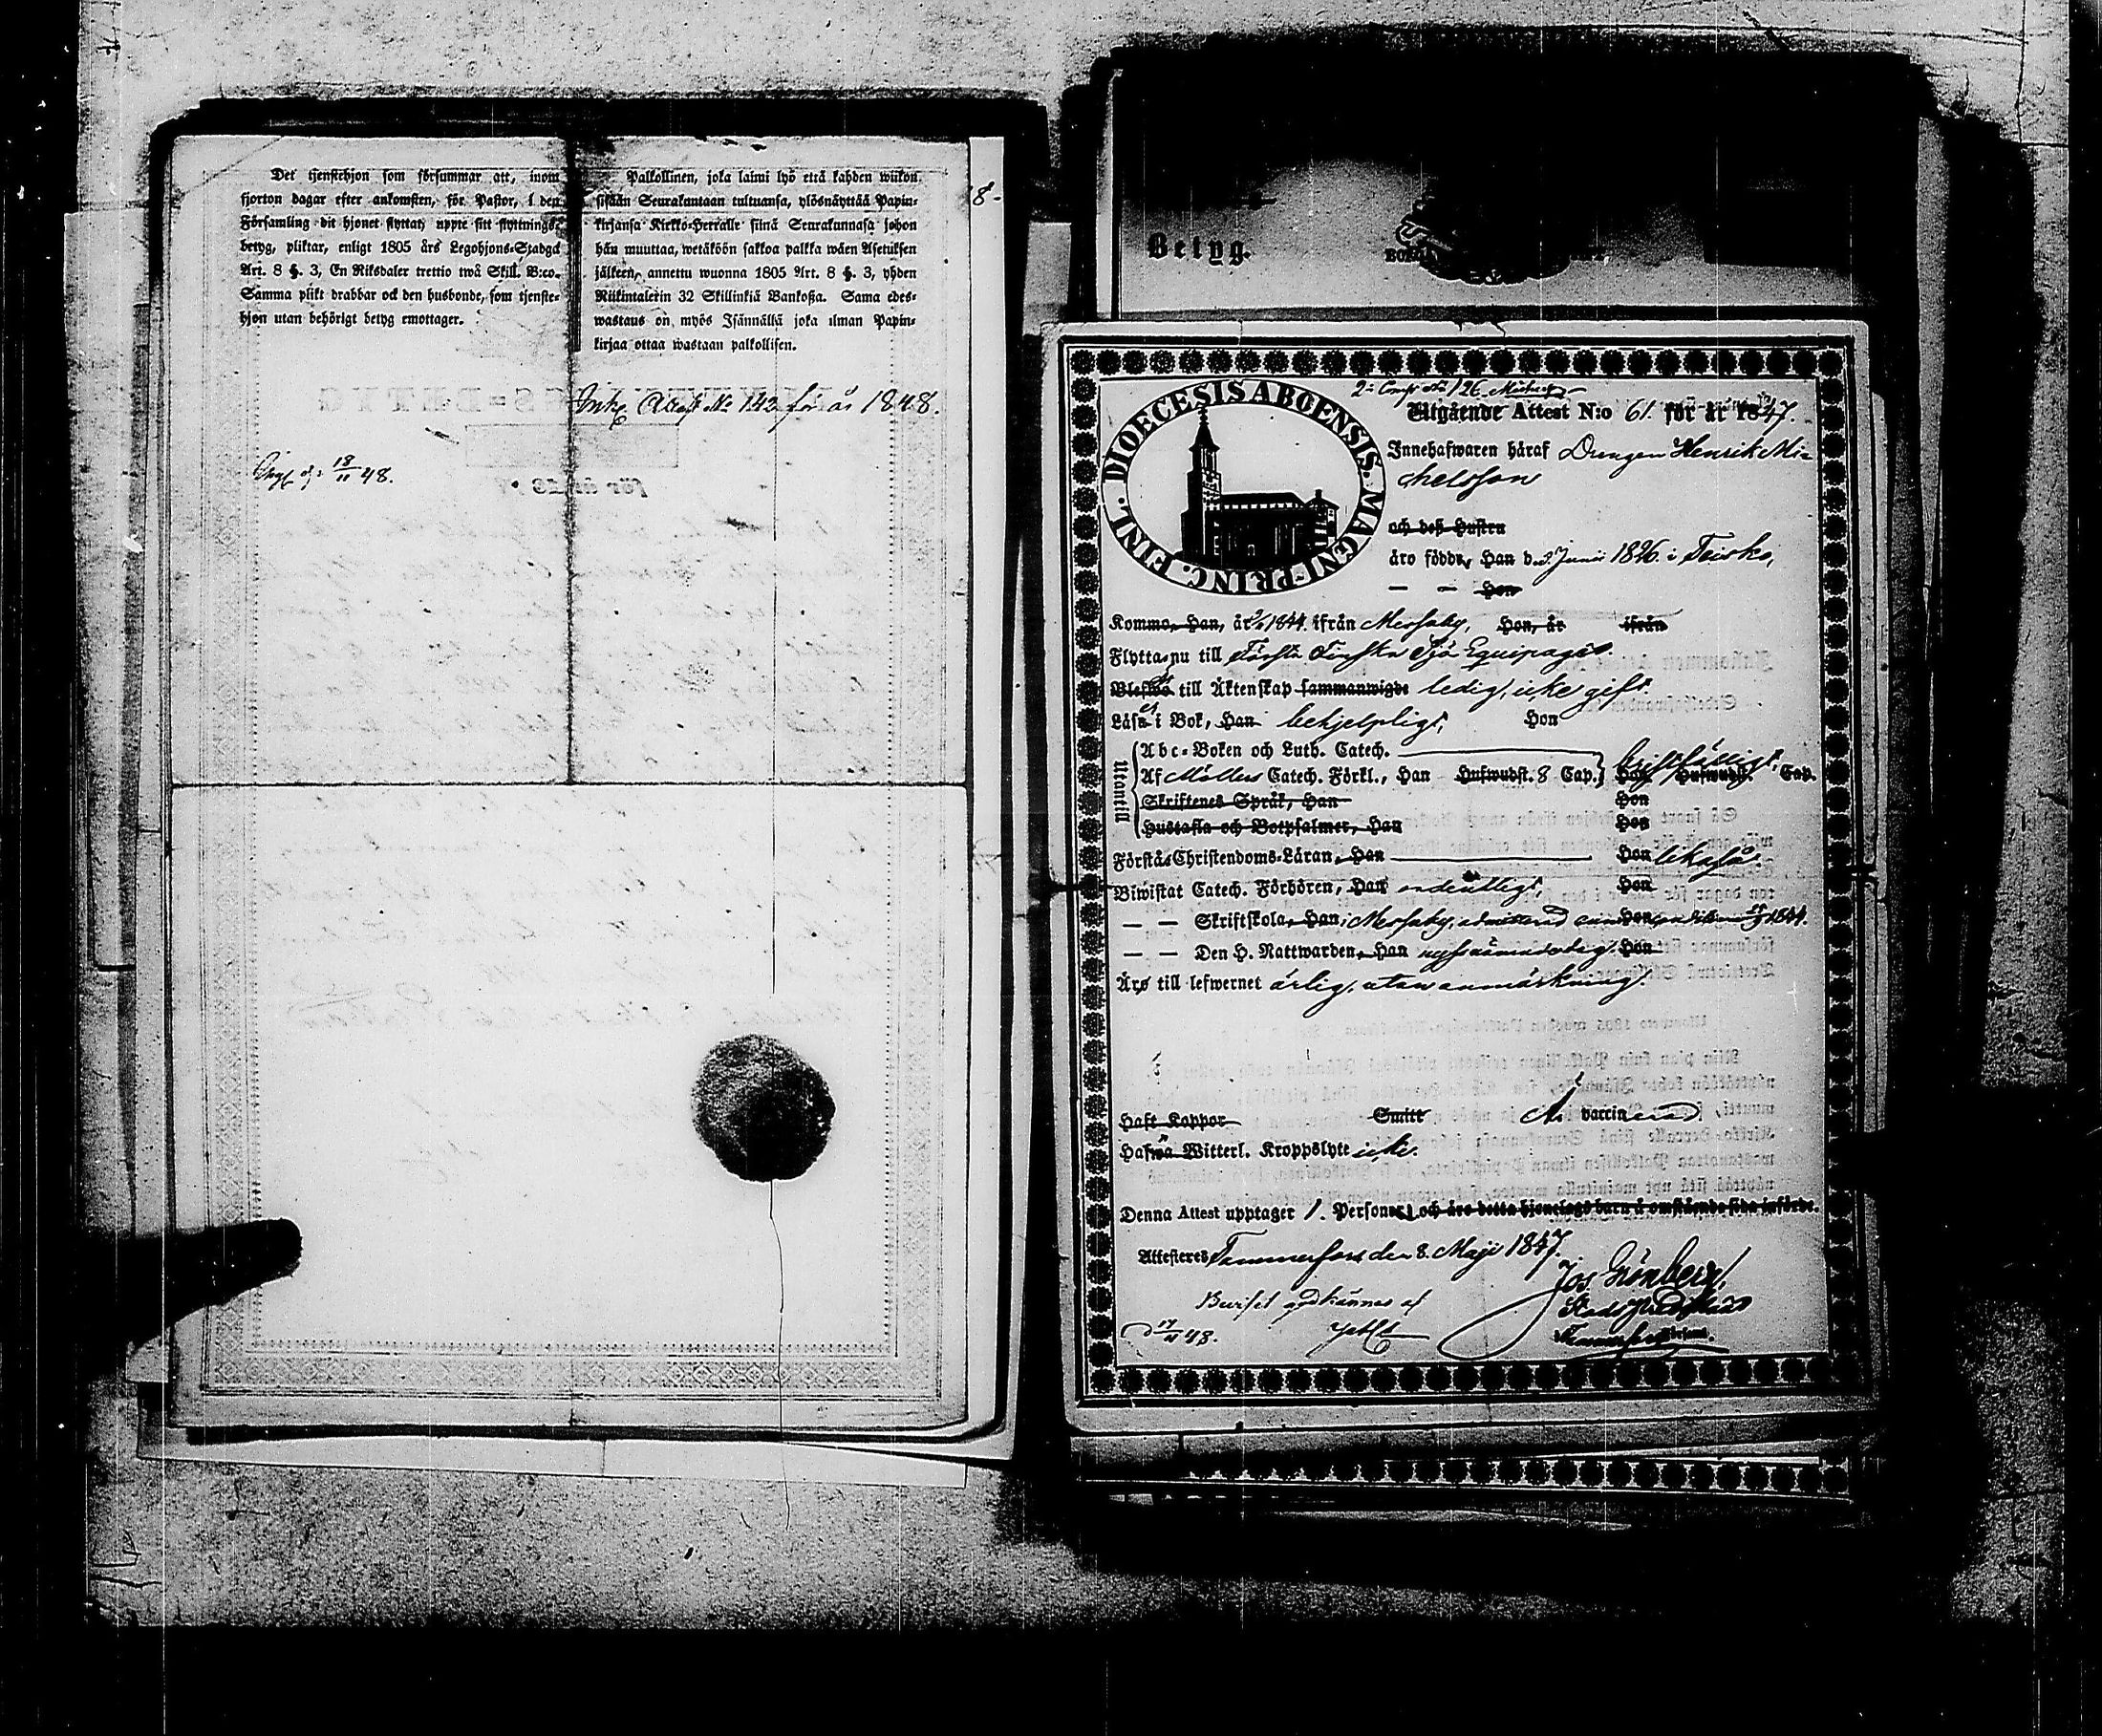 Det tjenstehjon som försummar att, inom
fjorton dagar efter ankomsten, för Pastor, i den
Församling dit hjonet flyttat, uppte sitt flyttnings-
betyg, pliktar, enligt 1805 års Legohjons-Stadga
Art. 8 §. 3, En Riksdaler trettio twå Skill. B:co.
Samma plikt drabbar ock den husbonde, som tjenste-
hjon utan behörigt betyg emottager.
Palkollinen, joka laimi lyö että kahden wiikon
sisään Seurakuntaan tultuansa, ylösnäyttää Papin-
kirjansa Kirkko-Herralle siinä Seurakunnasa johon
hän muuttaa, wetäköön sakkoa palkka wäen Asetuksen
jälkeen, annettu wuonna 1805 Art. 8 §. 3, yhden
Riikintalerin 32 Skillinkiä Bankoßa. Sama edes-
wastaus on myös Isännällä joka ilman Papin-
kirjaa ottaa wastaan palkollisen.
Attest No 143 för år 1848.
18/11 48.
8-
Betyg.
DIOECESIS ABOENSIS. MAGNI-PRINC. FINL.
126
Utgående Attest N:o 61. för år 1847.
Innehafwaren häraf Drengen Henrik Mi-
chelsson
och deß Hustru
äro födde, Han d. 3 Junii 1826. i Teisko,
— — Hon
Kommo, Han, år 1844. ifrån Messuby, Hon, år ifrån
Flytta nu till Första Finska Sjö Equipaget.
till Äktenskap sammanwigde ledig, icke gift.
Läser i Bok, Han behjelpligt, Hon
Utantill
Abc-Boken och Luth. Catech.
Af Möllers Catech. Förkl., Han Hufwudst. 8 Cap. bristfälligt, Hon Hufwudst. Cap.
Skriftenes Språk, Han Hon
Hustafla och Botpsalmer, Han Hon
Förstå Christendoms-Läran, Han Hon likaså.
Biwistat Catech. Förhören, Han ordentligt, Hon
— — Skriftskola, Han, i Messuby, admitterad Hon 1844.
— — Den H. Nattwarden, Han nyssnämnde dag. Hon
Äro till lefwernet ärlig, utan anmärkning.
Haft Koppor Smitt Är vaccinerad.
Hafwa Witterl. Kroppslyte icke.
Denna Attest upptager 1. Person(er) och äro detta hjonelags barn å omstående sida införde.
Attesteres Tammerfors den 8. Maji 1847.
Jos Grönberg,
Beviset godkännes af
17/11 48.